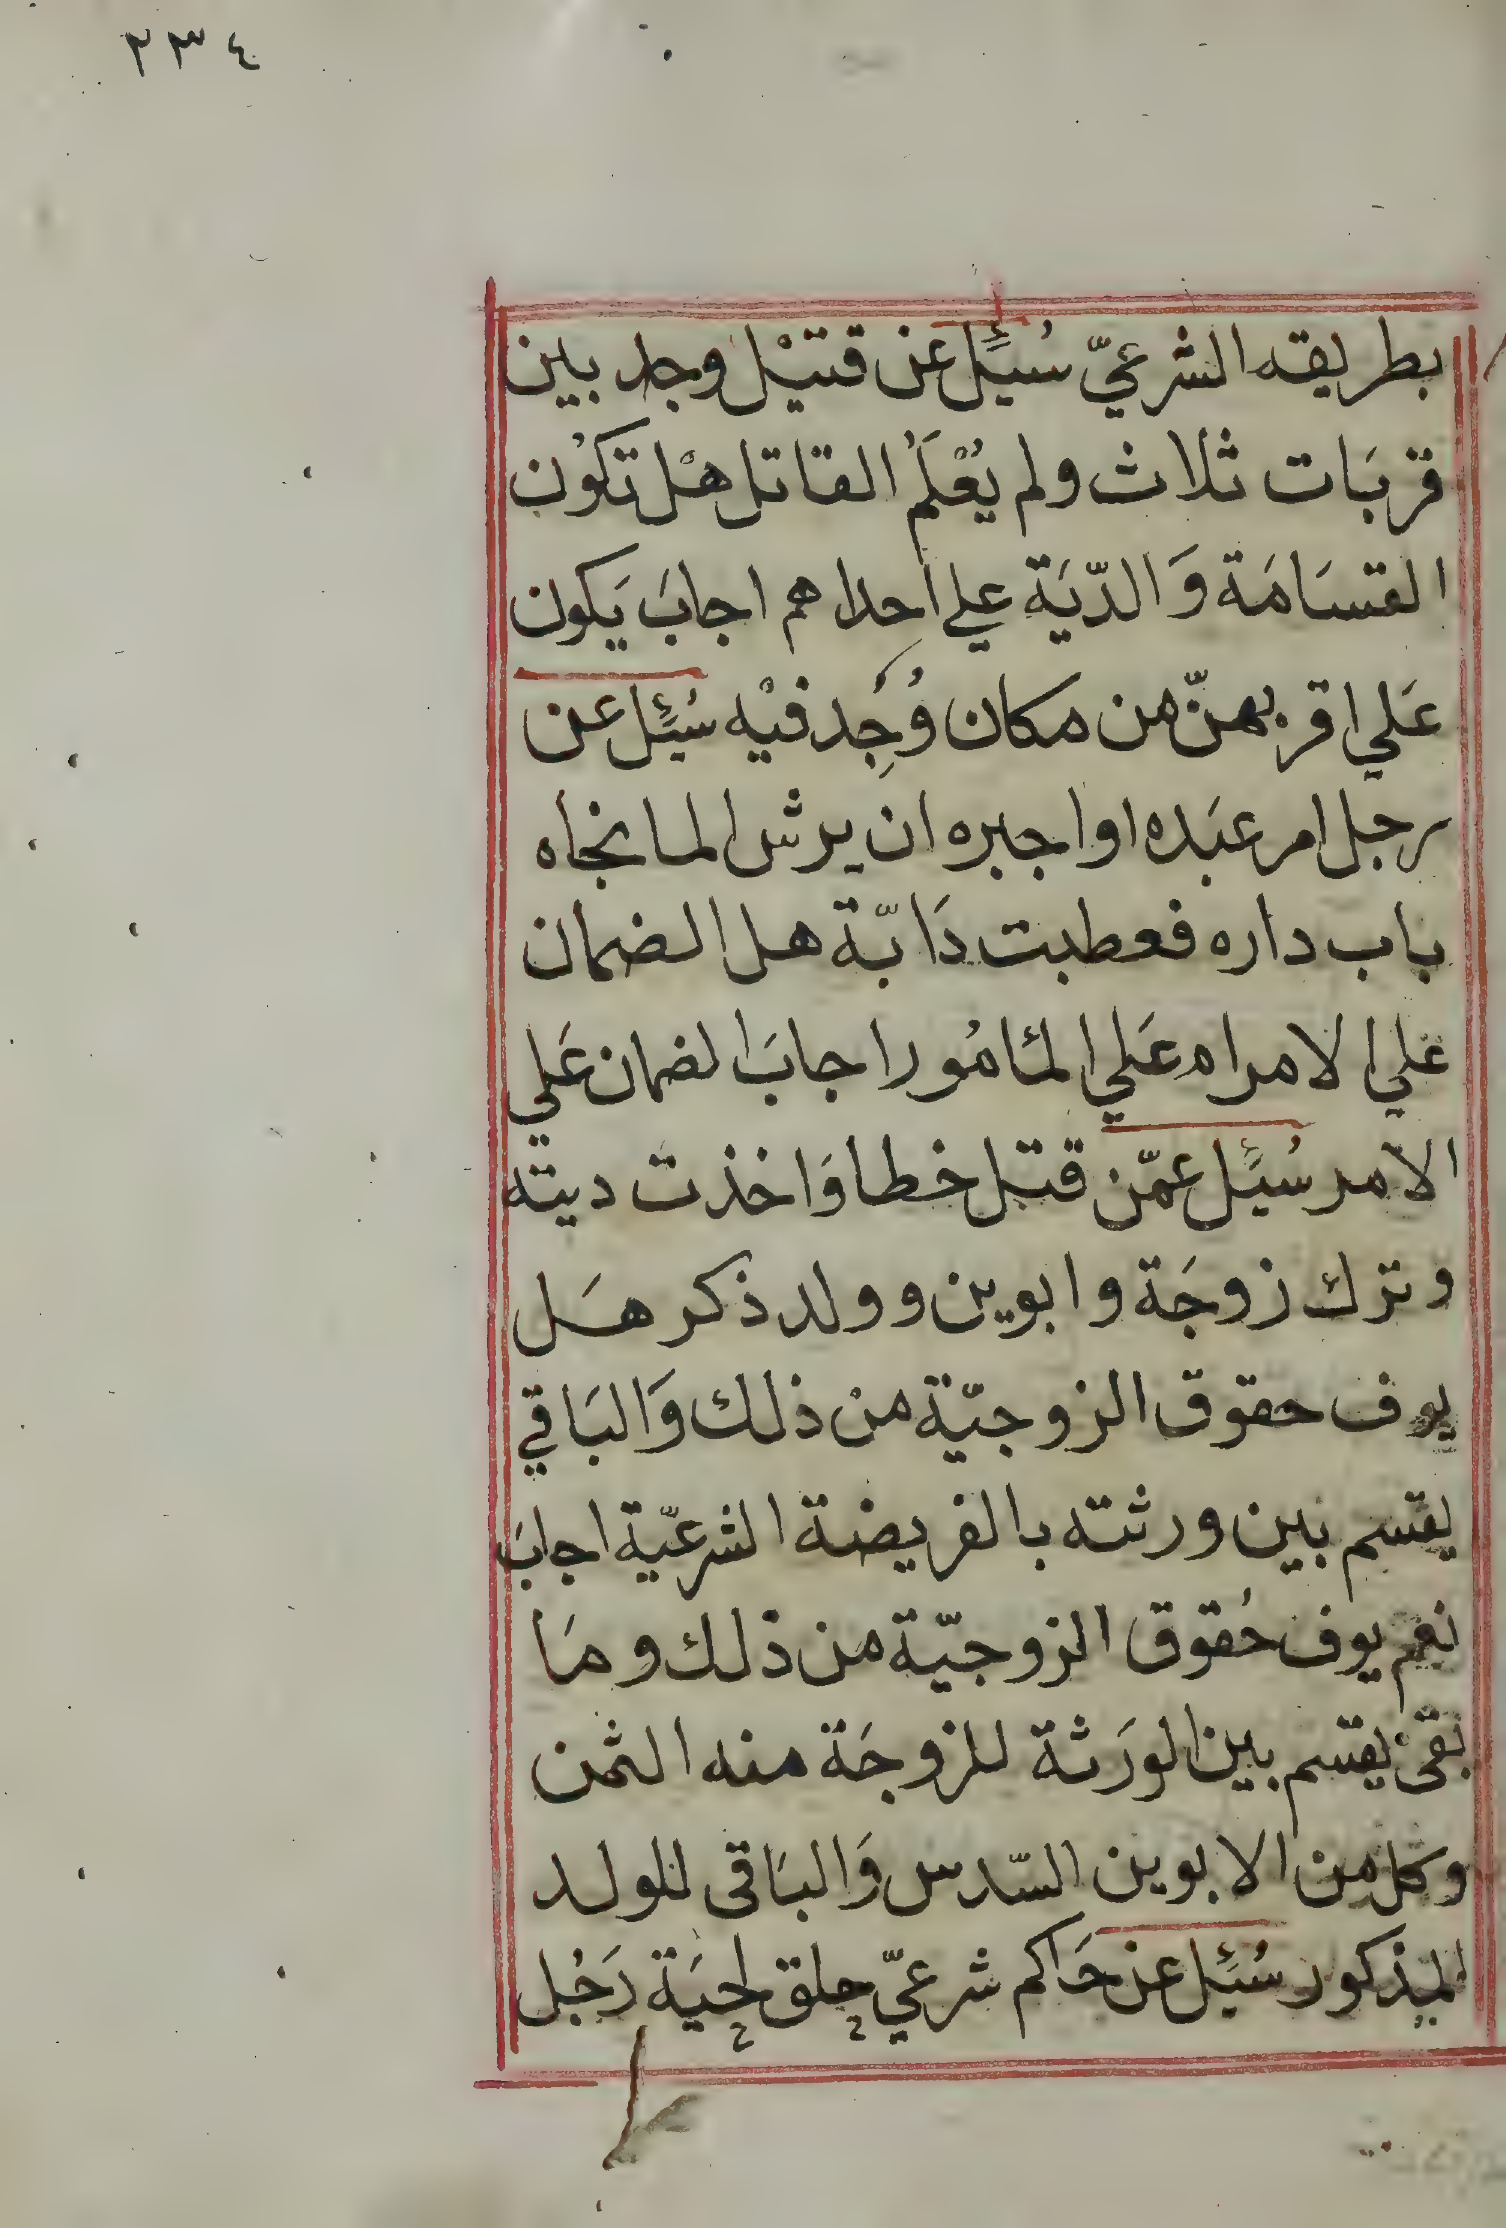 ٢٣٤
بطريقه الشرعيّ سُئِل عن قتيْل وجد بين
قربَات ثلاث ولم يُعْلَمُ القاتل هْل تكوُن
القسَامَة وَالدّيَة علي احداهم اجابَ يَكون
عَلي اقربهنّ من مكان وُجُِد فيْه سُئِل عن
رجل امر عبَده او اجبره ان يرش الما تجاه
باب داره فعطبت دَابّة هل الضمان
علي الامر ام عَلي المامُور اجابَ الضمان عَلي
الامر سُئِل عمّن قتل خطا وَاخذت ديته
وترك زوجَة وابوين وولد ذكر هَل
يوف حقوق الزوجيّة من ذلك وَالبَاقي
يقسم بين ورثته بالفريضة الشرعيّة اجابَ
نعم يوف حُقوق الزوجيّة من ذلك ومَا
بقى يقسم بين الورَثة للزوجَة منه الثمن
وكل من الابوين السّدس وَالبَاقى للولد
المذكور سُئِل عن حَاكم شرعيّ حلق لحيَة رَجُل